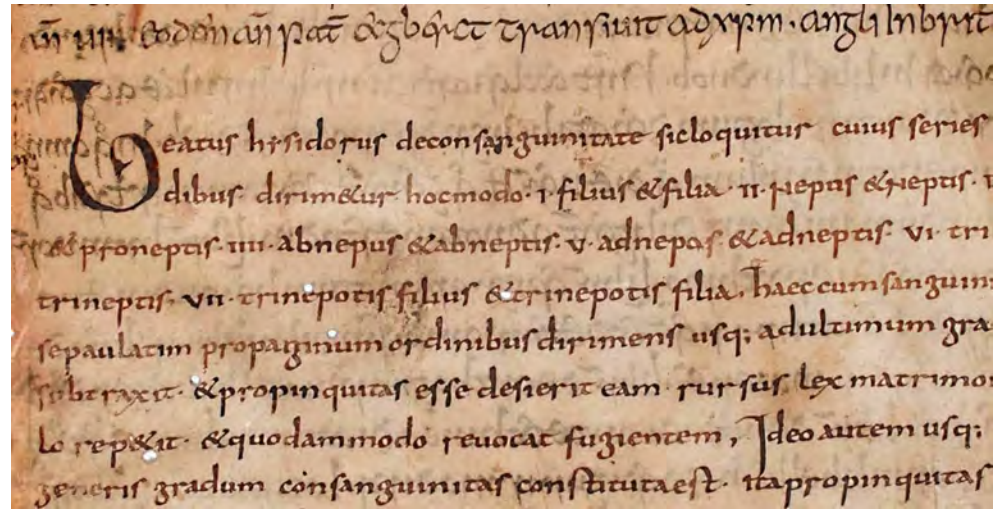 eodem an pat ecgberct transiuit ad xpm · angli in britt
Beatus hisidorus deconsanguinitate sicloquitur cuius series
dibus dirim&ur hocmodo · i · filius &filia · ii · neptis &neptis ·
&proneptis · iiii · abnepus &abneptis · v · adnepos &adneptis · vi · tri
trineptis · vii · trinepotis filius &trinepotis filia , haec cumsanguini
sepaulatim propaginum ordinibus dirimens usq; adultimum gra
subtraxit · &propinquitas esse desierit eam · rursus lex matrimo
lo rep&it · &quodammodo reuocat fugientem , Ideo autem usq;
generis gradum consanguinitas constitutaest · itapropinquitas